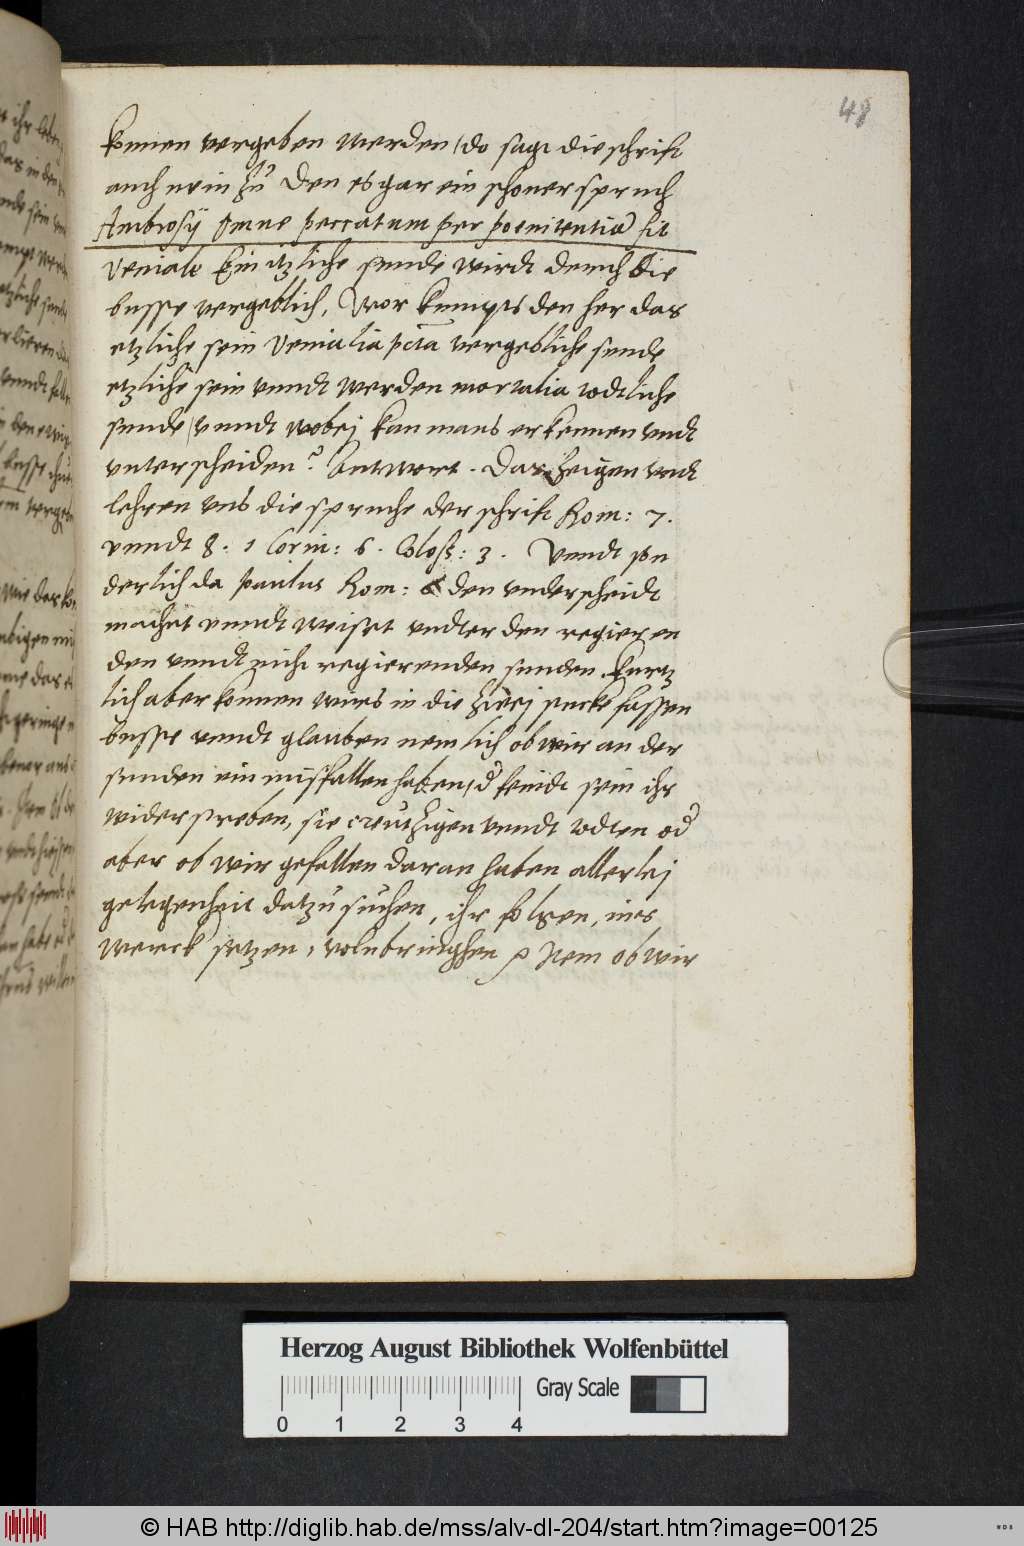 48
konnen vergeben werden, do sagt die schrifft
auch nein zu den es gar ein schoner spruch
Ambrosij Omne peccatum per poenitentiā fit
veniale Ein itzliche sunde wirdt durch die
busse vergeblich, Wor kumpts den her das
etzliche sein Venialia pcta vergebliche sunde
etzliche sein vnndt werden mortalia todtliche
sunde, vnndt wobej kan mans erkennen vndt
vnterscheiden? Antwort. Das Zeigen vndt
lehren vns die spruche der schrift Rom: 7.
vnndt 8. 1 Corin: 6. Coloss: 3. Vnndt son
derlich da paulus Rom: 6 den vnderscheidt
machet vnndt weiset vndter den regieren
den vnndt nicht regierenden sunden. Kurtz
lich aber konnen wirs in die zwej stucke fassen
busse vnndt glauben nemlich ob wir an der
sunden ein misfallen haben, d feindt sein ihr
widerstreben, sie creutzigen vnndt todten od
aber ob wir gefallen daran haben allerlej
gelegenheit datzu suchen, ihr folgen, ins
werck setzen, volnbringhen Item ob wir
Herzog August Bibliothek Wolfenbüttel
0 1 2 3 4 Gray Scale
© HAB http://diglib.hab.de/mss/alv-dl-204/start.htm?image=00125